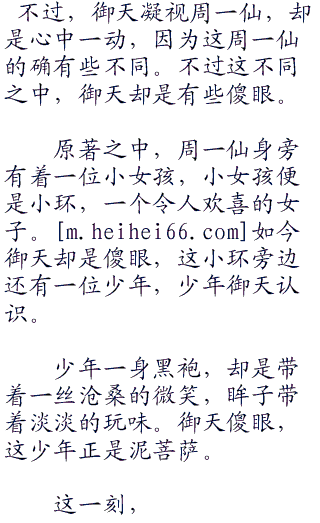 不过，御天凝视周一仙，却
是心中一动，因为这周一仙
的确有些不同。不过这不同
之中，御天却是有些傻眼。
原著之中，周一仙身旁
有着一位小女孩，小女孩便
是小环，一个令人欢喜的女
子。[m.heihei66.com]如今
御天却是傻眼，这小环旁边
还有一位少年，少年御天认
识。
少年一身黑袍，却是带
着一丝沧桑的微笑，眸子带
着淡淡的玩味。御天傻眼，
这少年正是泥菩萨。
这一刻，